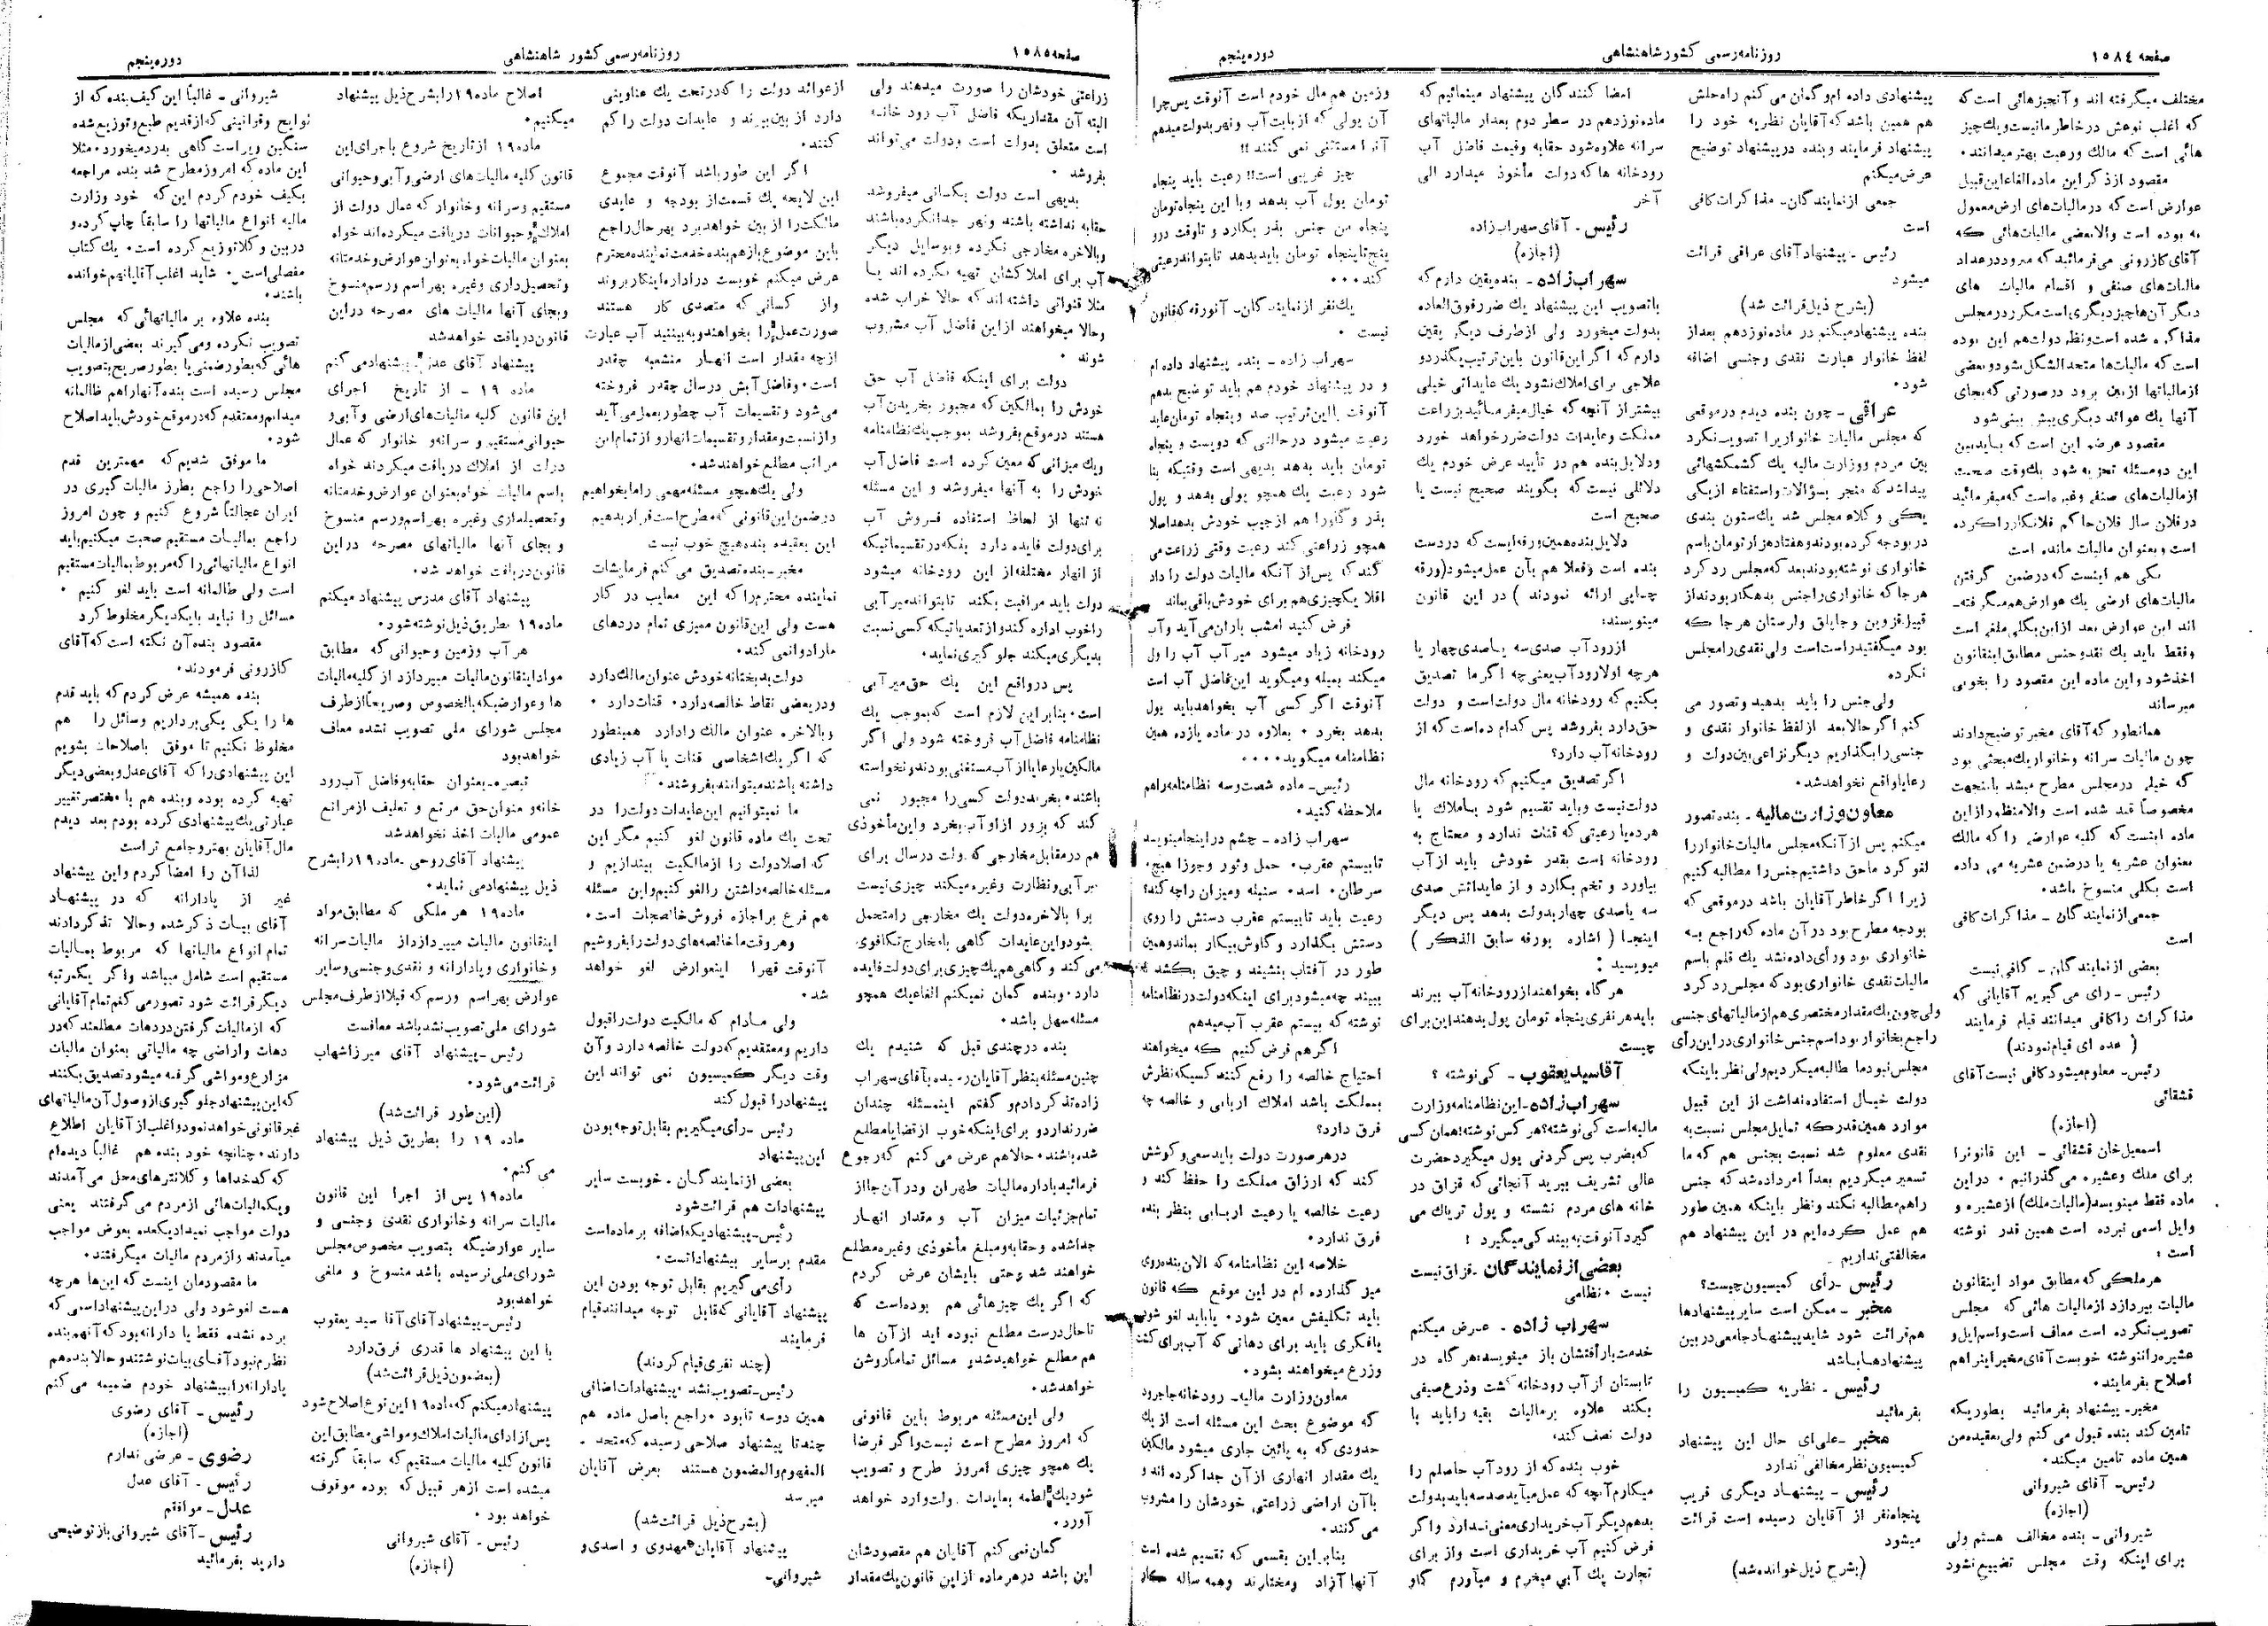 صفحه ۱۵۸٤
روزنامه رسمی کشور شاهنشاهی
دوره پنجم
مختلف میگرفته اند و آنچیزهائی است که
که اغلب نوعش در خاطر ما نیست و یك چیز
هائی است که مالك و رعیت بهتر میدانند.
مقصود از ذکر این ماده الغاء این قبیل
عوارض است که در مالیات‌های ارض معمول
به بوده است والا بعضی مالیات‌هائی که
آقای کازرونی می‌فرمائید که میرود در عداد
مالیات‌های صنفی و اقسام مالیات های
دیگر آن‌ها چیز دیگری است مکرر در مجلس
مذاکره شده است و نظر دولت هم این بوده
است که مالیات‌ها متحدالشکل شود و بعضی
از مالیاتها از بین برود در صورتی که بجای
آنها یك عوائد دیگری پیش بینی شود
مقصود عرضم این است که بیاید بین
این دو مسئله تجزیه شود یك وقت صحبت
از مالیات‌های صنفی و غیره است که میفرمائید
در فلان سال فلان حاکم فلانکار را کرده
است و بعنوان مالیات مانده است
یکی هم اینست که در ضمن گرفتن
مالیات‌های ارضی یك عوارض هم میگرفته-
اند این عوارض بعد از این بکلی ملغی است
و فقط باید یك نقد و جنس مطابق اینقانون
اخذ شود و این ماده این مقصود را بخوبی
میرساند
همانطور که آقای مخبر توضیح دادند
چون مالیات سرانه و خانوار یك مبحثی بود
که خیلی در مجلس مطرح میشد باینجهت
مخصوصاً قید شده است والا منظور از این
ماده اینست که کلیه عوارض را که مالك
بعنوان عشریه یا در ضمن عشریه می داده
است بکلی منسوخ باشد.
جمعی از نمایندگان - مذاکرات کافی
است
بعضی از نمایندگان - کافی نیست
رئیس - رای می گیریم آقایانی که
مذاکرات را کافی میدانند قیام فرمایند
( عده ای قیام نمودند )
رئیس - معلوم میشود کافی نیست آقای
قشقائی
(اجازه)
اسمعیل خان قشقائی - این قانون را
برای ملك و عشیره می گذرانیم . در این
ماده فقط مینویسد (مالیات ملك) از عشیره و
وایل اسمی نبرده است همین قدر نوشته
است :
هر ملکی که مطابق مواد اینقانون
مالیات بپردازد از مالیات هائی که مجلس
تصویب نکرده است معاف است و اسم ایل و
عشیره را ننوشته خوبست آقای مخبر اینرا هم
اصلاح بفرمایند.
مخبر - پیشنهاد بفرمائید بطوریکه
تامین کند بنده قبول می کنم ولی بعقیده من
همین ماده تامین میکند.
رئیس - آقای شیروانی
(اجازه)
شیروانی - بنده مخالف هستم ولی
برای اینکه وقت مجلس تضییع نشود
پیشنهادی داده ام و گمان می کنم راه حلش
هم همین باشد که آقایان نظریه خود را
پیشنهاد فرمایند و بنده در پیشنهاد توضیح
عرض میکنم
جمعی از نمایندگان - مذاکرات کافی
است
رئیس - پیشنهاد آقای عراقی قرائت
میشود
(بشرح ذیل قرائت شد)
بنده پیشنهاد میکنم در ماده نوزدهم بعد از
لفظ خانوار عبارت نقدی و جنسی اضافه
شود.
عراقی - چون بنده دیدم در موقعی
که مجلس مالیات خانواریرا تصویب نکرد
بین مردم و وزارت مالیه یك کشمکشهائی
پیدا شد که منجر بسؤالات و استفتاء از یکی
یکی وکلاء مجلس شد یك ستون بندی
در بودجه کرده بودند و هفتاد هزار تومان باسم
خانواری نوشته بودند بعد که مجلس رد کرد
هر جا که خانواری را جنس بدهکار بودند از
قبیل قزوین و جاپلق و لارستان هر جا که
بود میگفتید راست است ولی نقدی را مجلس
نکرده
ولی جنس را باید بدهید و تصور می
کنم اگر حالا بعد از لفظ خانوار نقدی و
جنسی را بگذاریم دیگر نزاعی بین دولت و
رعایا واقع نخواهد شد.
معاون وزارت مالیه - بنده تصور
میکنم پس از آنکه مجلس مالیات خانوار را
لغو کرد ما حق داشتیم جنس را مطالبه کنیم
زیرا اگر خاطر آقایان باشد در موقعی که
بودجه مطرح بود در آن ماده که راجع به
خانواری بود و رأی داده نشد یك قلم باسم
مالیات نقدی خانواری بود که مجلس رد کرد
ولی چون یك مقدار مختصری هم از مالیاتهای جنسی
راجع بخانوار بود اسم جنس خانواری در این رأی
مجلس نبود ما مطالبه میکردیم ولی نظر باینکه
دولت خیال استفاده نداشت از این قبیل
موارد همین قدر که تمایل مجلس نسبت به
نقدی معلوم شد نسبت بجنس هم که ما
تسعیر میکردیم بعداً امر داده شد که جنس
را هم مطالبه نکند و نظر باینکه همین طور
هم عمل کرده‌ایم در این پیشنهاد هم
مخالفتی نداریم
رئیس - رأی کمیسیون چیست؟
مخبر - ممکن است سایر پیشنهادها
هم قرائت شود شاید پیشنهاد جامعی در بین
پیشنهادها باشد
رئیس - نظریه کمیسیون را
بفرمائید
مخبر - علی ای حال این پیشنهاد
کمیسیون نظر مخالفی ندارد
رئیس - پیشنهاد دیگری قریب
پنجاه نفر از آقایان رسیده است قرائت
میشود
(بشرح ذیل خوانده شد)
امضا کنندگان پیشنهاد مینمائیم که
ماده نوزدهم در سطر دوم بعد از مالیاتهای
سرانه علاوه شود حقابه و قیمت فاضل آب
رودخانه ها که دولت مأخوذ میدارد الی
آخر
رئیس - آقای سهراب زاده
(اجازه)
سهراب زاده - بنده یقین دارم که
با تصویب این پیشنهاد یك ضرر فوق العاده
بدولت میخورد ولی از طرف دیگر یقین
دارم که اگر این قانون باین ترتیب بگذرد و
علاجی برای املاك نشود یك عایداتی خیلی
بیشتر از آنچه که خیال میفرمائید بزراعت
مملکت و عایدات دولت ضرر خواهد خورد
و دلایل بنده هم در تأیید عرض خودم یك
دلائلی نیست که بگویند صحیح نیست یا
صحیح است
دلایل بنده همین ورقه ایست که در دست
بنده است و فعلا هم بآن عمل میشود (ورقه
چاپی ارائه نمودند ) در این قانون
مینویسند:
از رود آب صدی سه یا صدی چهار یا
هر چه اولا رود آب یعنی چه اگر ما تصدیق
بکنیم که رودخانه مال دولت است و دولت
حق دارد بفروشد پس کدام ده است که از
رودخانه آب دارد؟
اگر تصدیق میکنیم که رودخانه مال
دولت نیست و باید تقسیم شود باملاك یا
هر ده یا رعیتی که قنات ندارد و محتاج به
رودخانه است بقدر خودش باید از آب
بیاورد و تخم بکارد و از عایداتش صدی
سه یا صدی چهار بدولت بدهد پس دیگر
اینجا ( اشاره بورقه سابق الذکر )
مینویسید :
هر گاه بخواهند از رودخانه آب ببرند
باید هر نفری پنجاه تومان پول بدهند این برای
چیست
آقا سید یعقوب - کی نوشته ؟
سهراب زاده - این نظامنامه وزارت
مالیه است کی نوشته؟ هر کس نوشته! همان کسی
که بضرب پس گردنی پول میگیرد حضرت
عالی تشریف ببرید آنجائی که قزاق در
خانه های مردم نشسته و پول تریاك می
گیرد آنوقت به بیند کی میگیرد !
بعضی از نمایندگان - قزاق نیست
نیست . نظامی
سهراب زاده - عرض میکنم
خدمت بارأفتشان باز مینویسد: هر گاه در
تابستان از آب رودخانه کشت و ذرع صیفی
بکند علاوه بر مالیات بقیه را باید با
دولت نصف کند.
خوب بنده که از رود آب حاصلم را
میکارم آنچه که عمل میآید صد سه باید بدولت
بدهم دیگر آب خریداری معنی ندارد و اگر
فرض کنیم آب خریداری است و از برای
تجارت یك آبی میخرم و میآورم گاو
و زمین هم مال خودم است آنوقت پس چرا
آن پولی که از بابت آب و نهر بدولت میدهم
آنرا مستثنی نمی کنند !!
چیز غریبی است!! رعیت باید پنجاه
تومان پول آب بدهد و با این پنجاه تومان
پنجاه من جنس بذر بکارد و تا وقت درو
پنج تا پنجاه تومان باید بدهد تا بتواند رعیتی
کند...
یکنفر از نمایندگان - آنورقه که قانون
نیست .
سهراب زاده - بنده پیشنهاد داده ام
و در پیشنهاد خودم هم باید توضیح بدهم
آنوقت باین ترتیب صد و پنجاه تومان عاید
رعیت میشود در حالتی که دویست و پنجاه
تومان باید بدهد بدیهی است وقتیکه بنا
شود رعیت یك همچو پولی بدهد و پول
بذر و گاو را هم از جیب خودش بدهد اصلا
همچو زراعتی نمی کند رعیت وقتی زراعت می
کند که پس از آنکه مالیات دولت را داد
اقلا یکچیزی هم برای خودش باقی بماند
فرض کنید امشب باران می‌آید و آب
رودخانه زیاد میشود میر آب آب را ول
میکند بمیله و میگوید این فاضل آب است
آنوقت اگر کسی آب بخواهد باید پول
بدهد بخرد . بعلاوه در ماده یازده همین
نظامنامه میگوید....
رئیس - ماده شصت و سه نظامنامه را هم
ملاحظه کنید.
سهراب زاده - چشم در اینجا مینویسد
تا بیستم عقرب. حمل و ثور و جوزا هیچ.
سرطان. اسد. سنبله و میزان را چه کند؟
رعیت باید تا بیستم عقرب دستش را روی
دستش بگذارد و گاوش بیکار بماند و همین
طور در آفتاب بنشیند و چپق بکشد تا
ببیند چه میشود برای اینکه دولت در نظامنامه
نوشته که بیستم عقرب آب میدهم
اگر هم فرض کنیم که میخواهند
احتیاج خالصه را رفع کنند کسیکه نظرش
بمملکت باشد املاك اربابی و خالصه چه
فرق دارد؟
در هر صورت دولت باید سعی و کوشش
کند که ارزاق مملکت را حفظ کند و
رعیت خالصه یا رعیت اربابی بنظر بنده
فرق ندارد.
خلاصه این نظامنامه که الان بنده روی
میز گذارده ام در این موقع که قانون
باید تکلیفش معین شود. یا باید لغو شود
یا فکری باید برای دهاتی که آب برای کشت
وزرع میخواهند بشود.
معاون وزارت مالیه - رودخانه جاجرود
که موضوع بحث این مسئله است از یك
حدودی که به پائین جاری میشود مالکین
یك مقدار انهاری از آن جدا کرده اند و
با آن اراضی زراعتی خودشان را مشروب
می کنند.
بنابراین بقسمی که تقسیم شده است
آنها آزاد و مختارند و همه ساله کار
صفحه ۱۵۸۵
روزنامه رسمی کشور شاهنشاهی
دوره پنجم
زراعتی خودشان را صورت میدهند ولی
البته آن مقداریکه فاضل آب رود خانه
است متعلق بدولت است و دولت می تواند
بفروشد .
بدیهی است دولت بکسانی میفروشد
حقابه نداشته باشند و نهر جدا نکرده باشند
و بالاخره مخارجی نکرده و بوسایل دیگر
آب برای املاکشان تهیه نکرده اند یا
مثلا قنواتی داشته‌اند که حالا خراب شده
و حالا میخواهند از این فاضل آب مشروب
شوند .
دولت برای اینکه فاضل آب حق
خودش را بمالکین که مجبور بخریدن آب
هستند در موقع بفروشد بموجب یك نظامنامه
و یك میزانی که معین کرده است فاضل آب
خودش را به آنها میفروشد و این مسئله
نه تنها از لحاظ استفاده فروش آب
برای دولت فایده دارد بلکه در تقسیماتیکه
از انهار مختلفه از این رودخانه میشود
دولت باید مراقبت بکند تا بتواند میر آبی
را خوب اداره کند و از تعدیاتیکه کسی نسبت
بدیگری میکند جلوگیری نماید.
پس در واقع این یك حق میر آبی
است. بنابر این لازم است که بموجب یك
نظامنامه فاضل آب فروخته شود ولی اگر
مالکین یا رعایا از آب مستغنی بودند و نخواسته
باشند. بخرند دولت کسی را مجبور نمی
کند که بزور از او آب بخرد و این مأخوذی
هم در مقابل مخارجی که دولت در سال برای
میر آبی و نظارت و غیره میکند چیزی نیست
زیرا بالاخره دولت یك مخارجی را متحمل
میشود و این عایدات گاهی با مخارج تکافوی
می کند و گاهی هم یك چیزی برای دولت فایده
دارد. و بنده گمان نمیکنم الغاء یك همچو
مسئله سهل باشد.
بنده در چندی قبل که شنیدم یك
چنین مسئله بنظر آقایان رسیده بآقای سهراب
زاده تذکر دادم و گفتم اینمسئله چندان
ضرر ندارد و برای اینکه خوب از قضایا مطلع
شده باشند. حالا هم عرض می کنم که رجوع
فرمائید باداره مالیات طهران و در آن جا از
تمام جزئیات میزان آب و مقدار انهار
جدا شده و حقابه و مبلغ مأخوذی و غیره مطلع
خواهند شد و حتی بایشان عرض کردم
که اگر یك چیزهائی هم بوده است که
تا حال درست مطلع نبوده اید از آن ها
هم مطلع خواهید شد و مسائل تماماً روشن
خواهد شد.
ولی این مسئله مربوط باین قانونی
که امروز مطرح است نیست و اگر فرضاً
یك همچو چیزی امروز طرح و تصویب
شود یك لطمه بعایدات دولت وارد خواهد
آورد.
گمان نمی کنم آقایان هم مقصودشان
این باشد در هر ماده از این قانون یك مقدار
از عوائد دولت را که در تحت یك عناوینی
دارد از بین ببرند و عایدات دولت را کم
کنند.
اگر این طور باشد آنوقت مجموع
این لایحه یك قسمت از بودجه و عایدی
مالکت را از بین خواهد برد بهر حال راجع
باین موضوع باز هم بنده خدمت نماینده محترم
عرض میکنم خوبست در اداره اینکار بروند
و از کسانی که متصدی کار هستند
صورت عمل را بخواهند و به بینند آب عبارت
از چه مقدار است انهار منشعبه چقدر
است. و فاضل آبش در سال چقدر فروخته
می‌شود و تقسیمات آب چطور بعمل می‌آید
و از نسبت و مقدار و تقسیمات انهار و از تمام این
مراتب مطلع خواهند شد.
ولی یك همچو مسئله مهمی را ما بخواهیم
در ضمن این قانونی که مطرح است قرار بدهیم
این بعقیده بنده هیچ خوب نیست
مخبر - بنده تصدیق می کنم فرمایشات
نماینده محترم را که این معایب در کار
هست ولی این قانون ممیزی تمام دردهای
ما را دوا نمی کند.
دولت بدبختانه خودش عنوان مالك دارد
و در بعضی نقاط خالصه دارد. قنات دارد .
و بالاخره عنوان مالك را دارد همینطور
که اگر یك اشخاصی قنات یا آب زیادی
داشته باشند میتوانند بفروشند.
ما نمیتوانیم این عایدات دولت را در
تحت یك ماده قانون لغو کنیم مگر این
که اصلا دولت را از مالکیت بیندازیم و
مسئله خالصه داشتن را لغو کنیم و این مسئله
هم فرع بر اجازه فروش خالصجات است.
و هر وقت ما خالصه‌های دولت را بفروشیم
آنوقت قهراً اینعوارض لغو خواهد
شد.
ولی مادام که مالکیت دولت را قبول
داریم و معتقدیم که دولت خالصه دارد و آن
وقت دیگر کمیسیون نمی تواند این
پیشنهاد را قبول کند
رئیس - رأی میگیریم بقابل توجه بودن
این پیشنهاد
بعضی از نمایندگان - خوبست سایر
پیشنهادات هم قرائت شود
رئیس - پیشنهادیکه اضافه بر ماده است
مقدم بر سایر پیشنهاداتست.
رأی می گیریم بقابل توجه بودن این
پیشنهاد آقایانی که قابل توجه میدانند قیام
فرمایند
(چند نفری قیام کردند)
رئیس - تصویب نشد. پیشنهادات اضافی
همین دوسه تا بود. راجع باصل ماده هم
چندتا پیشنهاد اصلاحی رسیده که متحد -
المفهوم والمضمون هستند بعرض آقایان
میرسد
(بشرح ذیل قرائت شد)
پیشنهاد آقایان مهدوی و اسدی و
شیروانی-
اصلاح ماده ۱۹ را بشرح ذیل پیشنهاد
میکنیم.
ماده ۱۹ از تاریخ شروع باجرای این
قانون کلیه مالیات های ارضی و آبی و حیوانی
مستقیم و سرانه و خانوار که عمال دولت از
املاك و حیوانات دریافت میکرده‌اند خواه
بعنوان مالیات خواه بعنوان عوارض و خدمتانه
و تحصیل داری و غیره بهر اسم و رسم منسوخ
و بجای آنها مالیات های مصرحه در این
قانون دریافت خواهد شد
پیشنهاد آقای عدل - پیشنهاد می کنم
ماده ۱۹ - از تاریخ اجرای
این قانون کلیه مالیات‌های ارضی و آبی و
حیوانی مستقیم و سرانه و خانوار که عمال
دولت از املاك دریافت میکردند خواه
باسم مالیات خواه بعنوان عوارض و خدمتانه
و تحصیلداری و غیره بهر اسم و رسم منسوخ
و بجای آنها مالیاتهای مصرحه در این
قانون دریافت خواهد شد.
پیشنهاد آقای مدرس پیشنهاد میکنم
ماده ۱۹ بطریق ذیل نوشته شود.
هر آب و زمین و حیوانی که مطابق
مواد اینقانون مالیات میپردازد از کلیه مالیات
ها و عوارضیکه بالخصوص و صریحاً از طرف
مجلس شورای ملی تصویب نشده معاف
خواهد بود
تبصره - بعنوان حقابه و فاضل آب رود
خانه و عنوان حق مرتع و تعلیف از مراتع
عمومی مالیات اخذ نخواهد شد
پیشنهاد آقای روحی - ماده ۱۹ را بشرح
ذیل پیشنهاد می نماید.
ماده ۱۹ هر ملکی که مطابق مواد
اینقانون مالیات میپردازد از مالیات سرانه
و خانواری و پادارانه و نقدی و جنسی و سایر
عوارض بهر اسم و رسم که قبلا از طرف مجلس
شورای ملی تصویب نشد باشد معافست
رئیس - پیشنهاد آقای میرزا شهاب
قرائت می شود.
(این طور قرائت شد)
ماده ۱۹ را بطریق ذیل پیشنهاد
می کنم.
ماده ۱۹ پس از اجرا این قانون
مالیات سرانه و خانواری نقدی و جنسی و
سایر عوارضیکه بتصویب مخصوص مجلس
شورای ملی نرسیده باشد منسوخ و ملغی
خواهد بود
رئیس - پیشنهاد آقای آقا سید یعقوب
با این پیشنهاد ها قدری فرق دارد
(بمضمون ذیل قرائت شد)
پیشنهاد میکنم که ماده ۱۹ این نوع اصلاح شود
پس از ادای مالیات املاك و مواشی مطابق این
قانون کلیه مالیات مستقیم که سابقاً گرفته
میشده است از هر قبیل که بوده موقوف
خواهد بود .
رئیس - آقای شیروانی
(اجازه)
شیروانی - غالباً این کیف بنده که از
لوایح و قوانینی که از قدیم طبع و توزیع شده
سنگین و پر است گاهی بدرد میخورد. مثلا
این ماده که امروز مطرح شد بنده مراجعه
بکیف خودم کردم این که خود وزارت
مالیه انواع مالیاتها را سابقاً چاپ کرده و
در بین وکلا توزیع کرده است. یك کتاب
مفصلی است. شاید اغلب آقایان هم خوانده
باشند.
بنده علاوه بر مالیاتهائی که مجلس
تصویب نکرده و می گیرند بعضی از مالیات
هائی که بطور ضمنی یا بطور صریح بتصویب
مجلس رسیده است بنده آنها را هم ظالمانه
میدانم و معتقدم که در موقع خودش باید اصلاح
شود.
ما موفق شدیم که مهمترین قدم
اصلاحی را راجع بطرز مالیات گیری در
ایران عجالتاً شروع کنیم و چون امروز
راجع بمالیات مستقیم صحبت میکنیم باید
انواع مالیاتهائی را که مربوط بمالیات مستقیم
است ولی ظالمانه است باید لغو کنیم .
مسائل را نباید با یکدیگر مخلوط کرد
مقصود بنده آن نکته است که آقای
کازرونی فرمودند.
بنده همیشه عرض کردم که باید قدم
ها را یکی یکی برداریم و مسائل را هم
مخلوط نکنیم تا موفق باصلاحات بشویم
این پیشنهادی را که آقای عدل و بعضی دیگر
تهیه کرده بوده و بنده هم با مختصر تغییر
عبارتی یك پیشنهادی کرده بودم بعد دیدم
مال آقایان بهتر و جامع تر است
لذا آن را امضا کردم و این پیشنهاد
غیر از پادارانه که در پیشنهاد
آقای بیات ذکر شده و حالا تذکر دادند
تمام انواع مالیاتها که مربوط بمالیات
مستقیم است شامل میباشد و اگر یکمرتبه
دیگر قرائت شود تصور می کنم تمام آقایانی
که از مالیات گرفتن در دهات مطلعند که در
دهات و اراضی چه مالیاتی بعنوان مالیات
مزارع و مواشی گرفته میشود تصدیق بکنند
که این پیشنهاد جلوگیری از وصول آن مالیاتهای
غیر قانونی خواهد نمود و اغلب از آقایان اطلاع
دارند. چنانچه خود بنده هم غالباً دیده‌ام
که کدخداها و کلانترهای محل می آمدند
و یکمالیات هائی از مردم می گرفتند یعنی
دولت مواجب نمیداد یکعده بعوض مواجب
میآمدند و از مردم مالیات میگرفتند.
ما مقصودمان اینست که این‌ها هر چه
هست لغو شود ولی در این پیشنهاد اسمی که
برده نشده فقط پا دارانه بود که آنهم بنده
نظرم نبود آقای بیات نوشتند و حالا بنده هم
پادارانه را پیشنهاد خودم ضمیمه می کنم
رئیس - آقای رضوی
(اجازه)
رضوی - عرضی ندارم
رئیس - آقای عدل
عدل - موافقم
رئیس - آقای شیروانی باز توضیحی
دارید بفرمائید